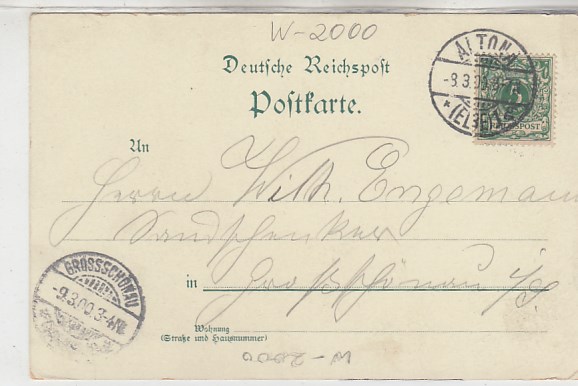 W-2000
Deutsche Reichspost
Postkarte.
ALTONA
-8.3.00
* (ELBE) 1
5
REICHSPOST
An
Herrn Wilh. Engemann
in Großschönau i/S.
GROSSSCHÖNAU
-9.3.00.3-4N.
Wohnung
(Straße und Hausnummer)
W-2000